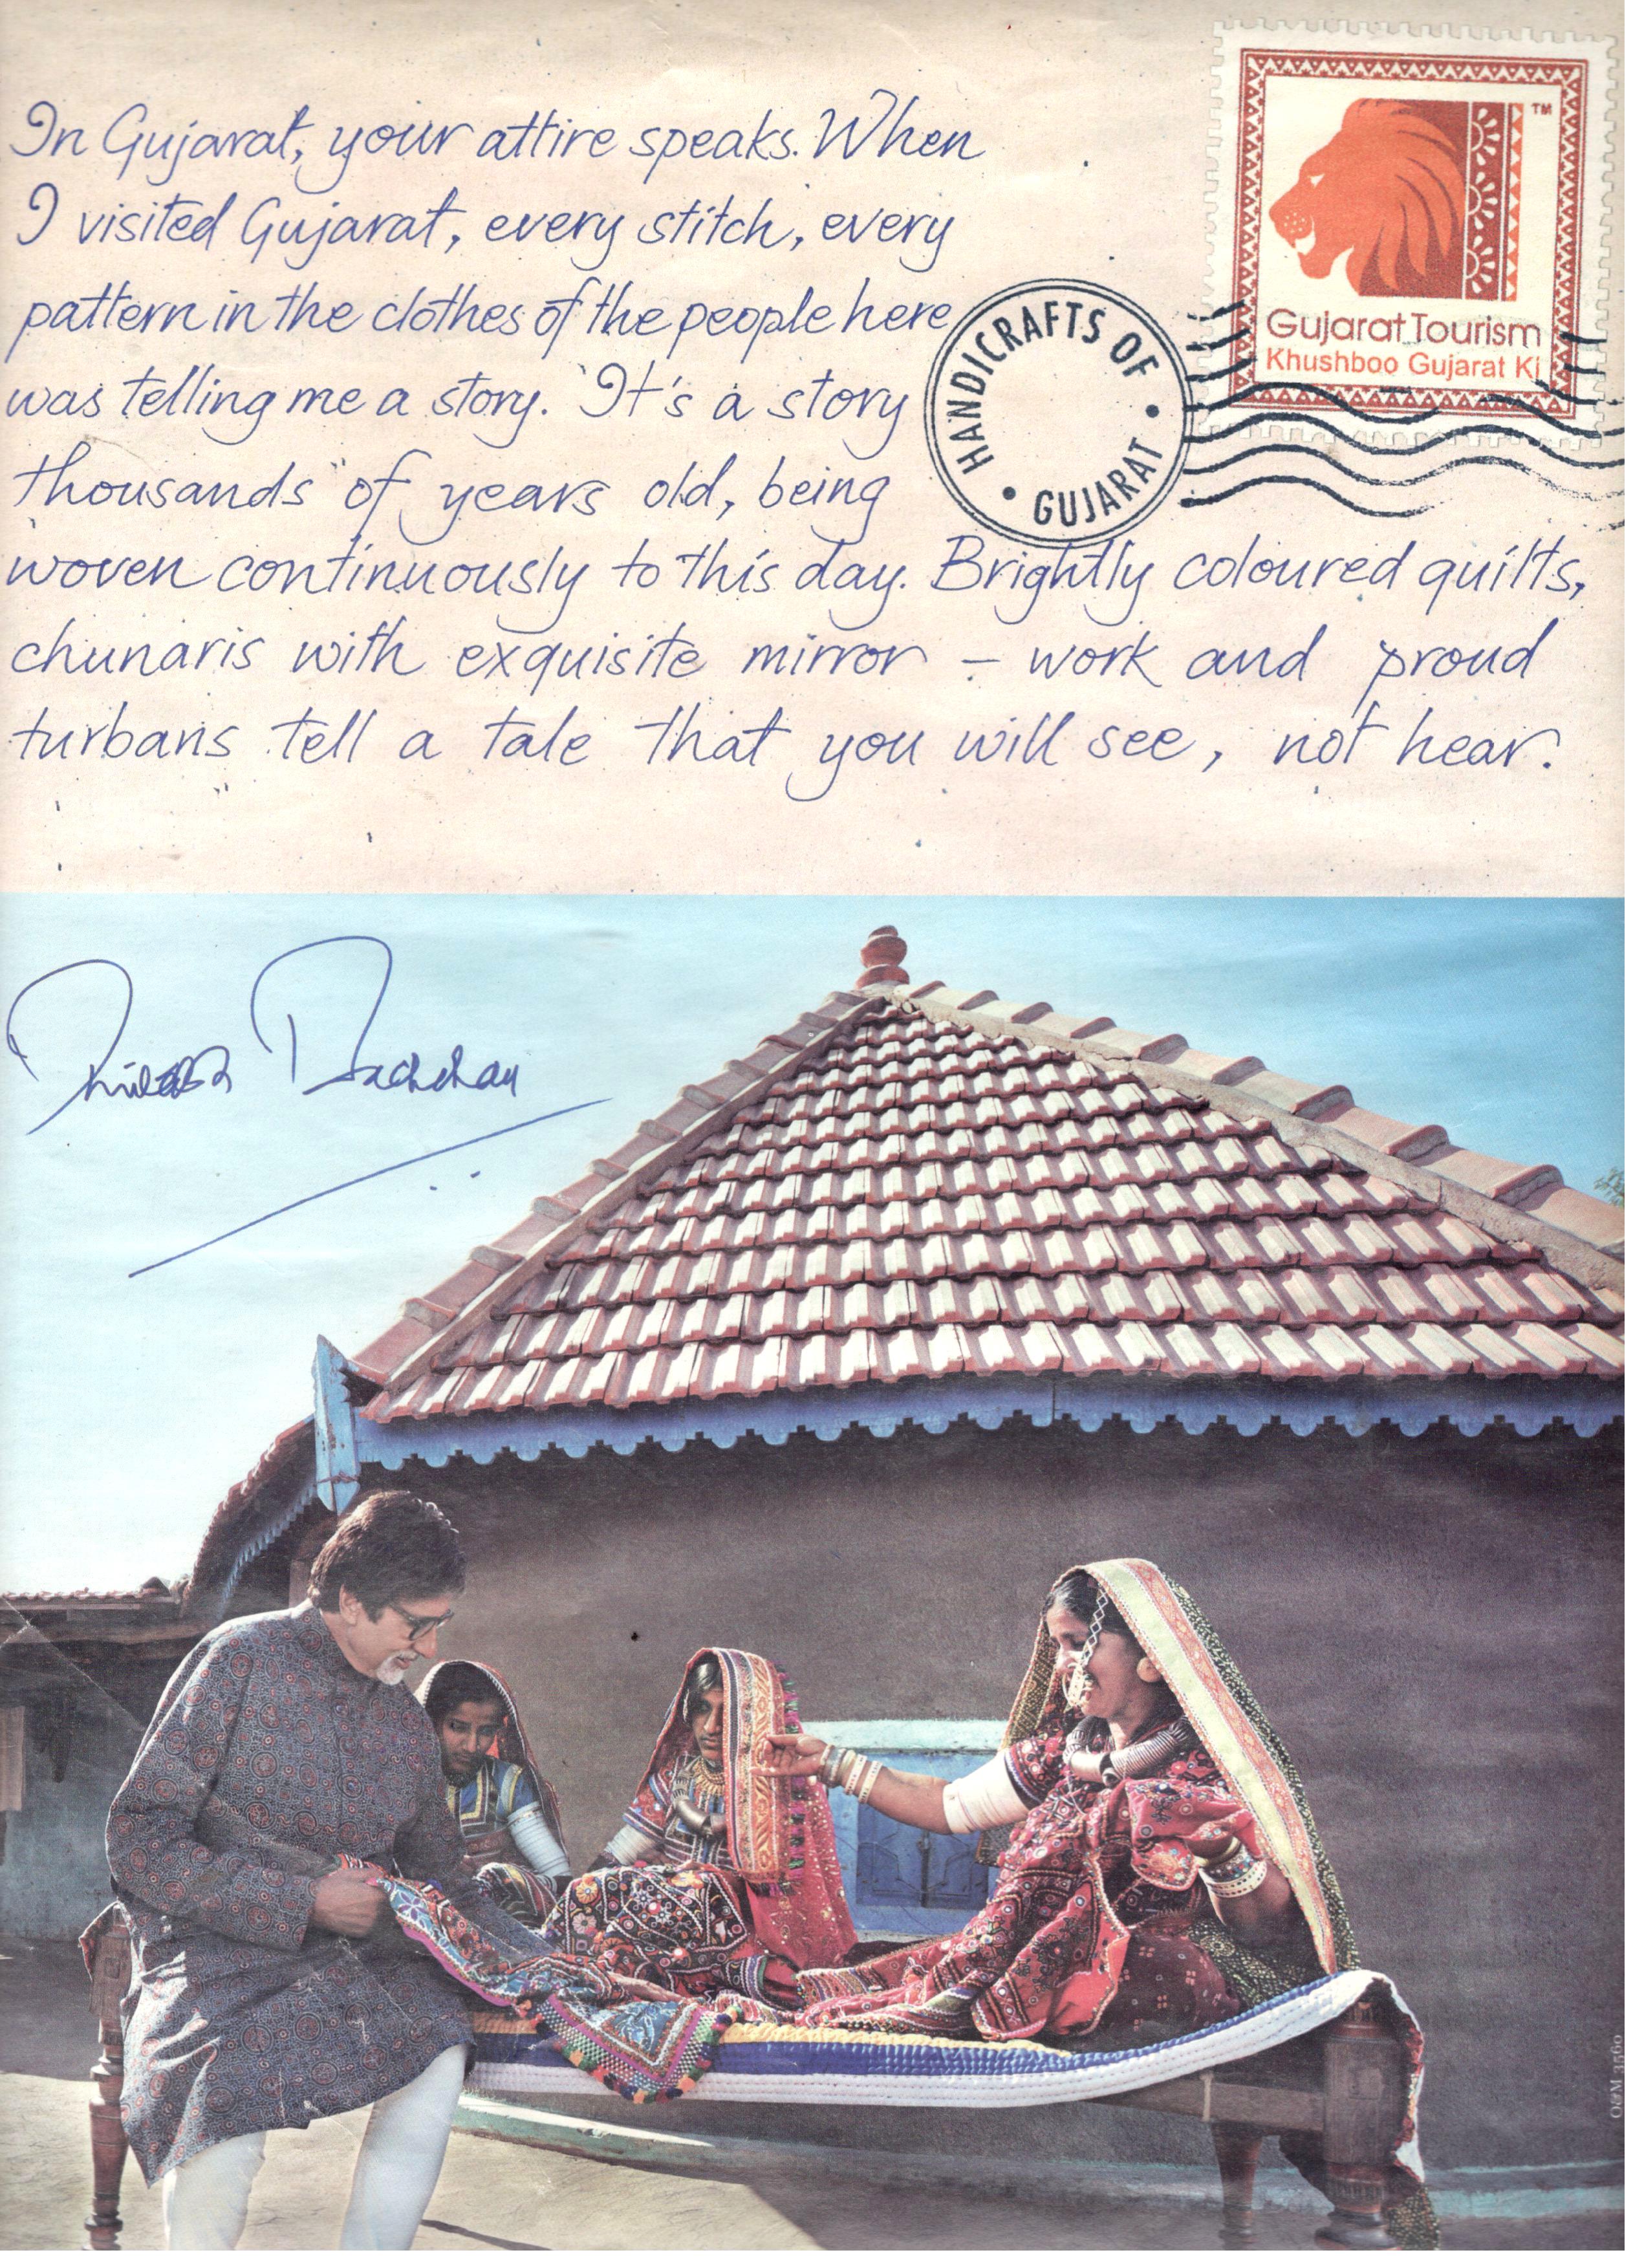 In Gujarat, your attire speaks. When
I visited Gujarat, every stitch, every
pattern in the clothes of the people here
was telling me a story. It's a story
thousands of years old, being
woven continuously to this day. Brightly coloured quilts,
chunaris with exquisite mirror - work and proud
turbans tell a tale that you will see, not hear.
TM
Gujarat Tourism
Khushboo Gujarat Ki
HANDICRAFTS OF
GUJARAT
Amitabh Bachchan
O&M 3560